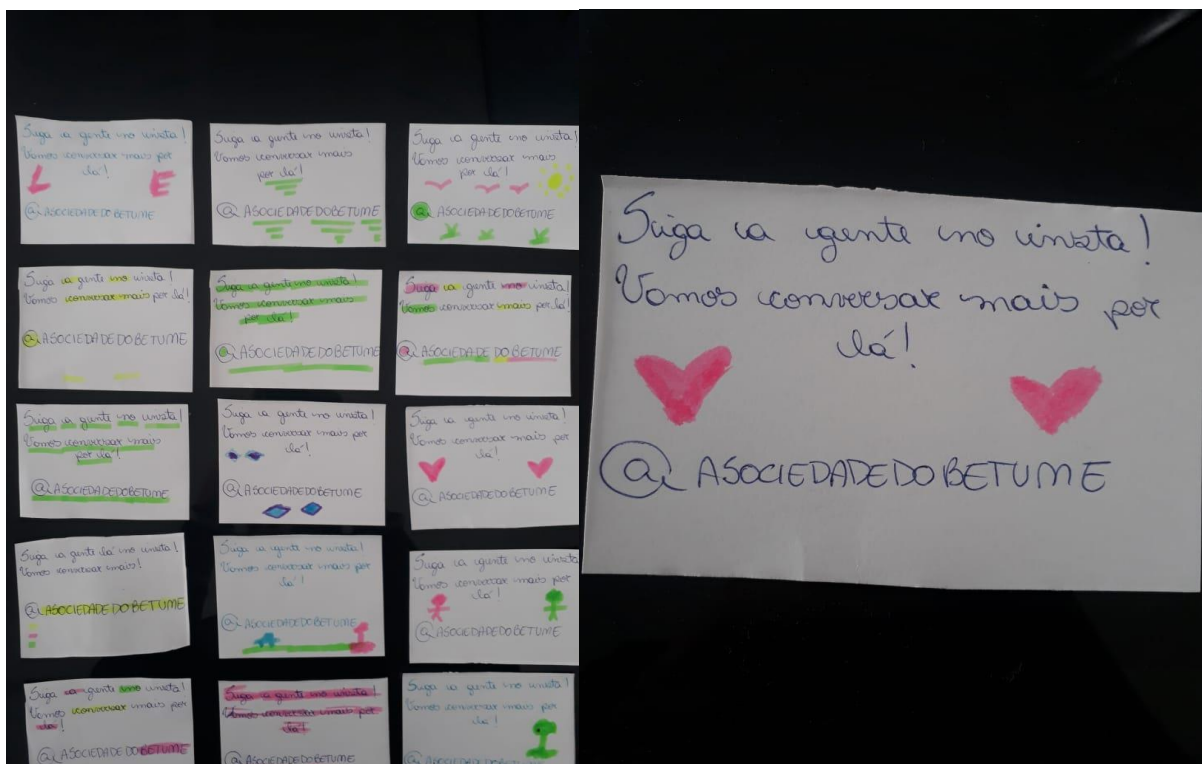 Siga a gente no insta!
Vamos conversar mais por
lá!
L E
@ASOCIEDADEDOBETUME
Siga a gente no insta!
Vamos conversar mais
por lá!
@ASOCIEDADEDOBETUME
Siga a gente no insta!
Vamos conversar mais
por lá!
@ASOCIEDADEDOBETUME
Siga a gente no insta!
Vamos conversar mais por lá!
@ASOCIEDADEDOBETUME
Siga a gente no insta!
Vamos conversar mais
por lá!
@ASOCIEDADEDOBETUME
Siga a gente no insta!
Vamos conversar mais por lá!
@ASOCIEDADEDOBETUME
Siga a gente no insta!
Vamos conversar mais
por lá!
@ASOCIEDADEDOBETUME
Siga a gente no insta!
Vamos conversar mais por
lá!
@ASOCIEDADEDOBETUME
Siga a gente no insta!
Vamos conversar mais por
lá!
@ASOCIEDADEDOBETUME
Siga a gente lá no insta!
Vamos conversar mais!
@ASOCIEDADEDOBETUME
Siga a gente no insta!
Vamos conversar mais por
lá!
@ASOCIEDADEDOBETUME
Siga a gente no insta
Vamos conversar mais por
lá!
@ASOCIEDADEDOBETUME
Siga a gente no insta!
Vamos conversar mais por
lá!
@ASOCIEDADEDOBETUME
Siga a gente no insta!
Vamos conversar mais por
lá!
@ASOCIEDADEDOBETUME
Siga a gente no insta!
Vamos conversar mais por
lá!
@ASOCIEDADEDOBETUME
Siga a gente no insta!
Vamos conversar mais por
lá!
@ASOCIEDADEDOBETUME